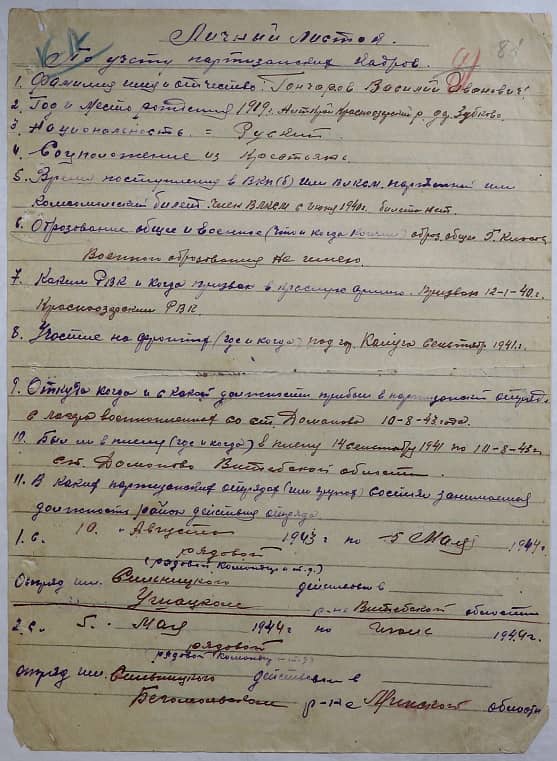 Личный листок
По учету партизанских кадров.
1. Фамилия имя и отчество: Гончаров Василий Иванович
2. Год и место рождения 1919. Алт.край Краснозерский р. д. Зубково.
3. Национальность = Руский
4. Соцположение из Крестьян.
5. Время поступления в ВКП(б) или ВЛКСМ, партийный или
комсомольский билет. Член ВЛКСМ с 1940г. билета нет.
6. Оброзование общее и военное (что и когда кончил) оброз. общее
Военного оброзования не имею.
7. Каким РВК и когда призван в красную армию. Призван 12-1-40г.
Краснозерским РВК.
8. Участие на фронтах (где и когда) под гор. Калуга сентябр 1941г.
9. Откуда когда и с какой должности прибыл в партизанский отряд
с лагеря военнопленных со ст. Доманово 10-8-43 года.
10. Был ли в плену (где и когда) в плену 14 сентябр 1941 по 10-8-43г
ст. Доманово Витебской области.
11. В каких партизанских отрядах (или группах) состоял занимаемая
должность район действия отряда.
1. с. 10. Августа 1943г по 5 Мая 1944г
рядовой
(рядовой командир и т.д.)
Отряд им. Сильницкого действовал в
Ушацком р-не Витебской области
2. с. 5. Мая 1944г по 1944г.
рядовой
рядовой командир и т.д.
отряд им. Сильницкого действовал в
Бегомльском р-не Минской области